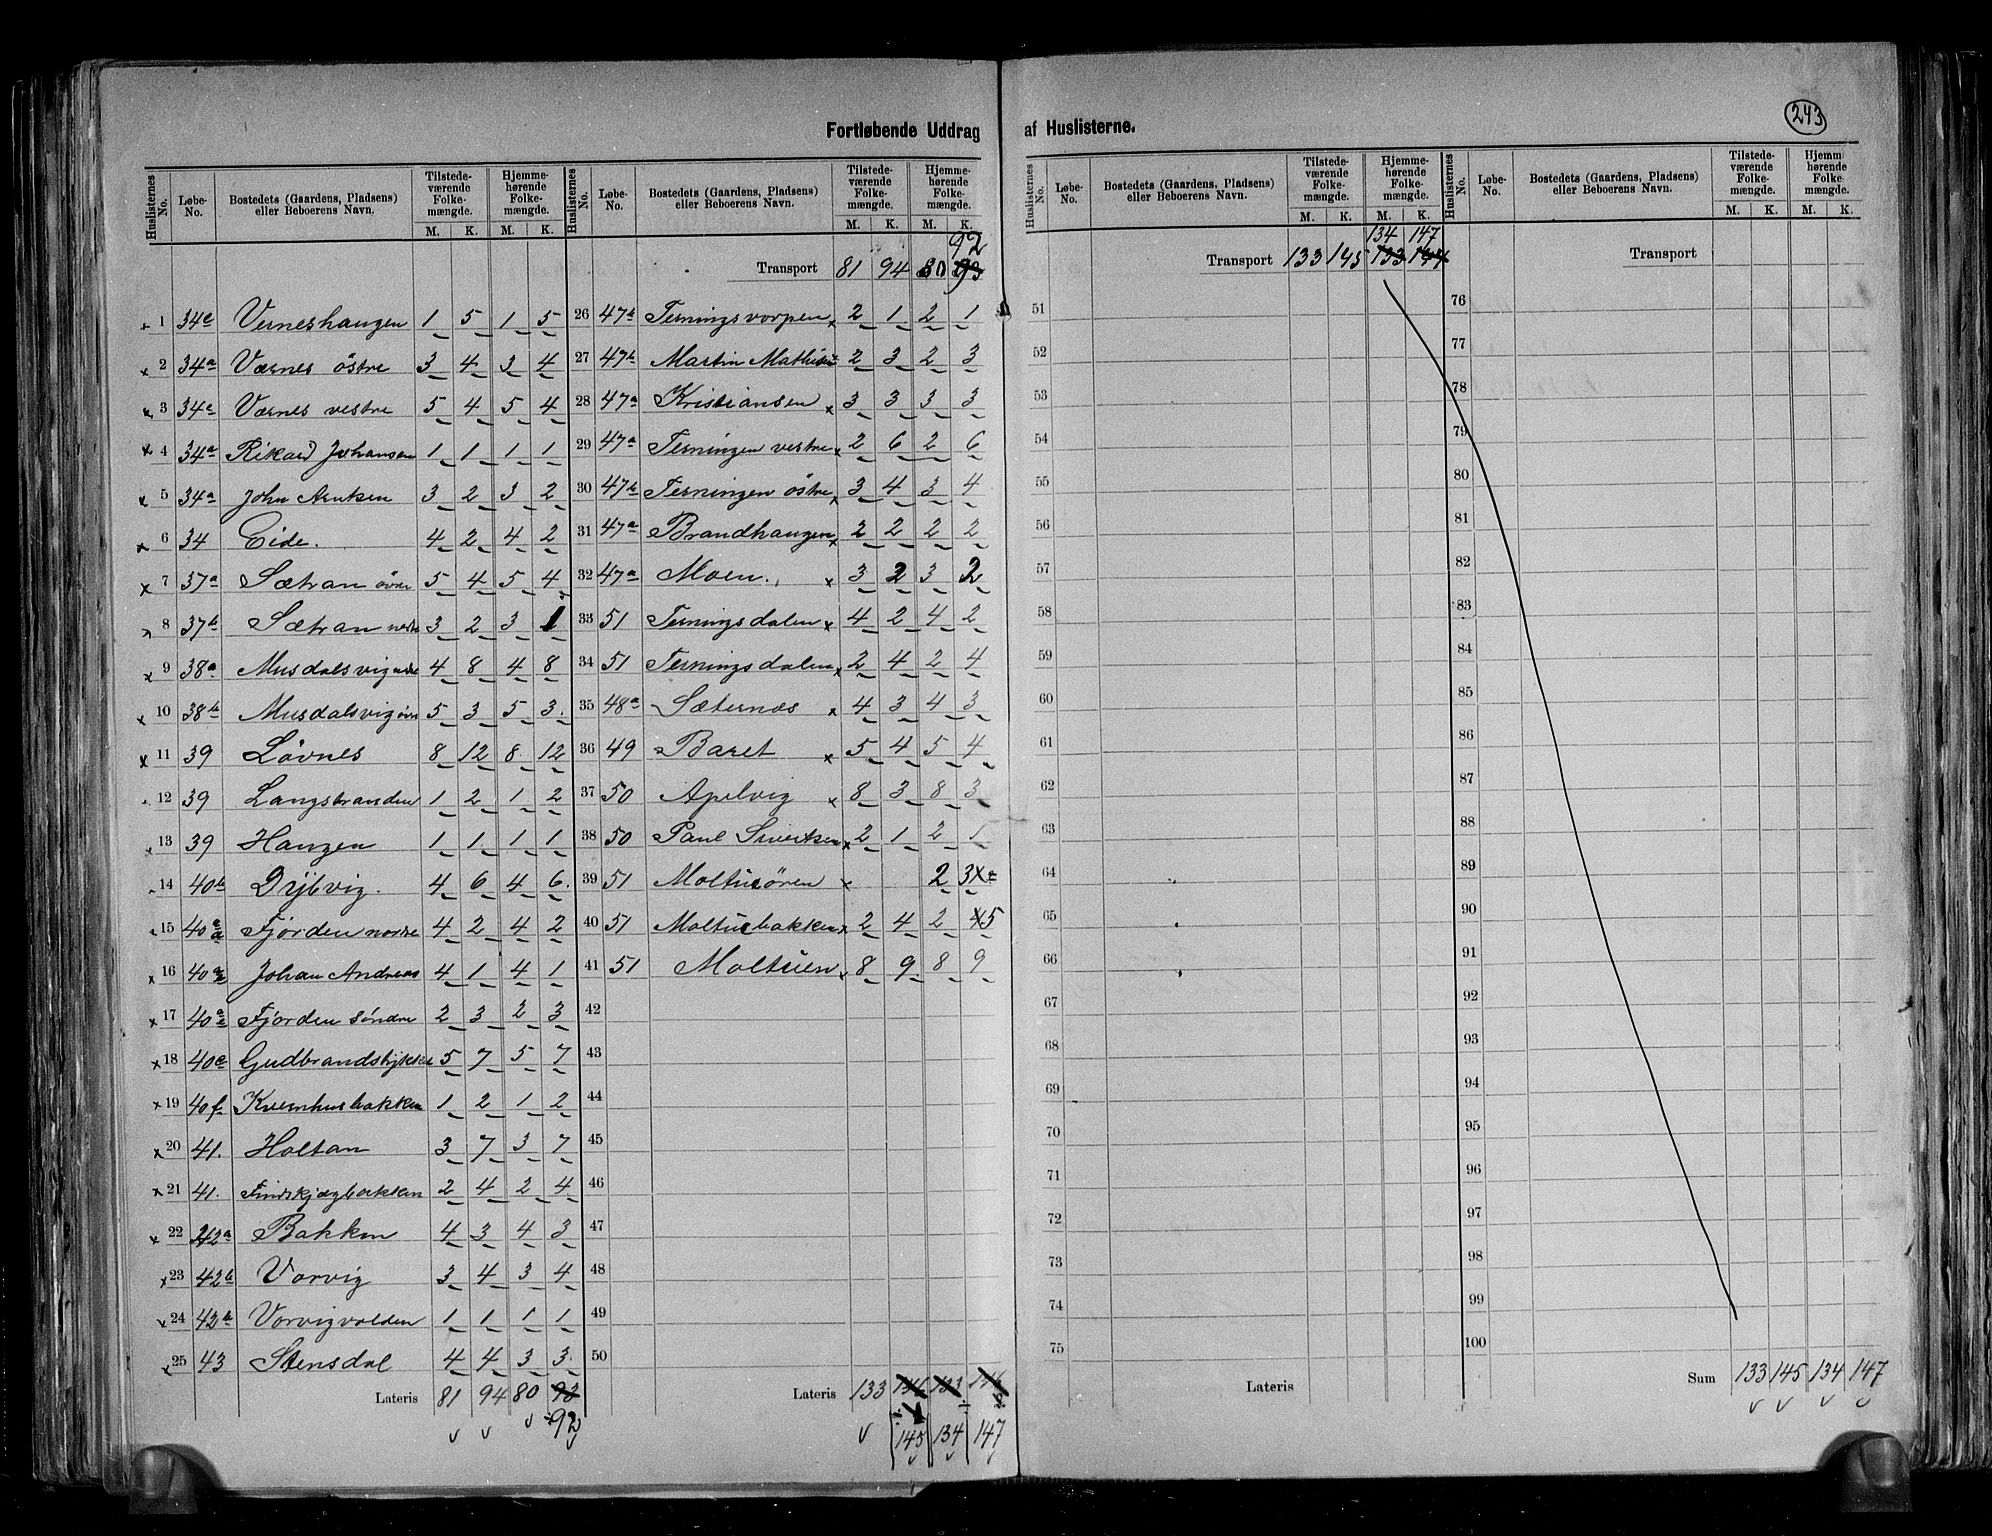 Fortløbende Uddrag af Huslisterne.
243
Huslisternes No. Løbe-No. Bostedets (Gaardens, Pladsens) eller Beboerens Navn. Tilstedeværende Folkemængde. M. K. Hjemmehørende Folkemængde. M. K.
1 34e Verneshaugen 1 5 1 5
2 34a Værnes østre 3 4 3 4
3 34c Værnes vestre 5 4 5 4
4 34a Rikard Johansen 1 1 1 1
5 34a John Arntsen 3 2 3 2
6 34 Eide. 4 2 4 2
7 37a Sætran øvre 5 4 5 4
8 37b Sætran nedre 3 2 3 1
9 38a Musdalsvig nedre 4 8 4 8
10 38b Musdalsvig øvre 5 3 5 3
11 39 Løvnes 8 12 8 12
12 39 Langstranden 1 2 1 2
13 39 Haugen 1 1 1 1
14 40b Dybvig. 4 6 4 6
15 40 Fjorden nordre 4 2 4 2
16 40 Johan Andreas 4 1 4 1
17 40 Fjorden søndre 2 3 2 3
18 40e Gudbrandstykket 5 7 5 7
19 40f Kvernhusbakken 1 2 1 2
20 41. Holtan 3 7 3 7
21 41. Finskjægbakken 2 4 2 4
22 42a Bakken 4 3 4 3
23 42b Vorvig 3 4 3 4
24 42a Vorvigvolden 1 1 1 1
25 43 Stensdal 4 4 3 3
Lateris 81 94 80 93
92
Huslisternes No. Løbe-No. Bostedets (Gaardens, Pladsens) eller Beboerens Navn. Tilstedeværende Folkemængde. M. K. Hjemmehørende Folkemængde. M. K.
92
Transport 81 94 80 93
26 47b Terningsvorpen 2 1 2 1
27 47b Martin Mathisen 2 3 2 3
28 47a Kristiansen 3 3 3 3
29 47a Terningen vestre 2 6 2 6
30 47b Terningen østre 3 4 3 4
31 47a Brandhaugen 2 2 2 2
32 47a Moen. 3 2 3 2
33 51 Terningsdalen 4 2 4 2
34 51 Terningsdalen 2 4 2 4
35 48a Sæternæs 4 3 4 3
36 49 Baret 5 4 5 4
37 50 Apelvig 8 3 8 3
38 50 Paul Sivertsen 2 1 2 1
39 51 Moltuøren 2 3
40 51 Moltuebakken 2 4 2 4 5
41 51 Moltuen 8 9 8 9
42
43
44
45
46
47
48
49
50
Lateris 133 146 133 146
145 134 147
Huslisternes No. Løbe-No. Bostedets (Gaardens, Pladsens) eller Beboerens Navn. Tilstedeværende Folkemængde. M. K. Hjemmehørende Folkemængde. M. K.
134 147
Transport 133 145 133 144
51
52
53
54
55
56
57
58
59
60
61
62
63
64
65
66
67
68
69
70
71
72
73
74
75
Lateris
Huslisternes No. Løbe-No. Bostedets (Gaardens, Pladsens) eller Beboerens Navn. Tilstedeværende Folkemængde. M. K. Hjemmehørende Folkemængde. M. K.
Transport
76
77
78
79
80
81
82
83
84
85
86
87
88
89
90
91
92
93
94
95
96
97
98
99
100
Sum 133 145 134 147